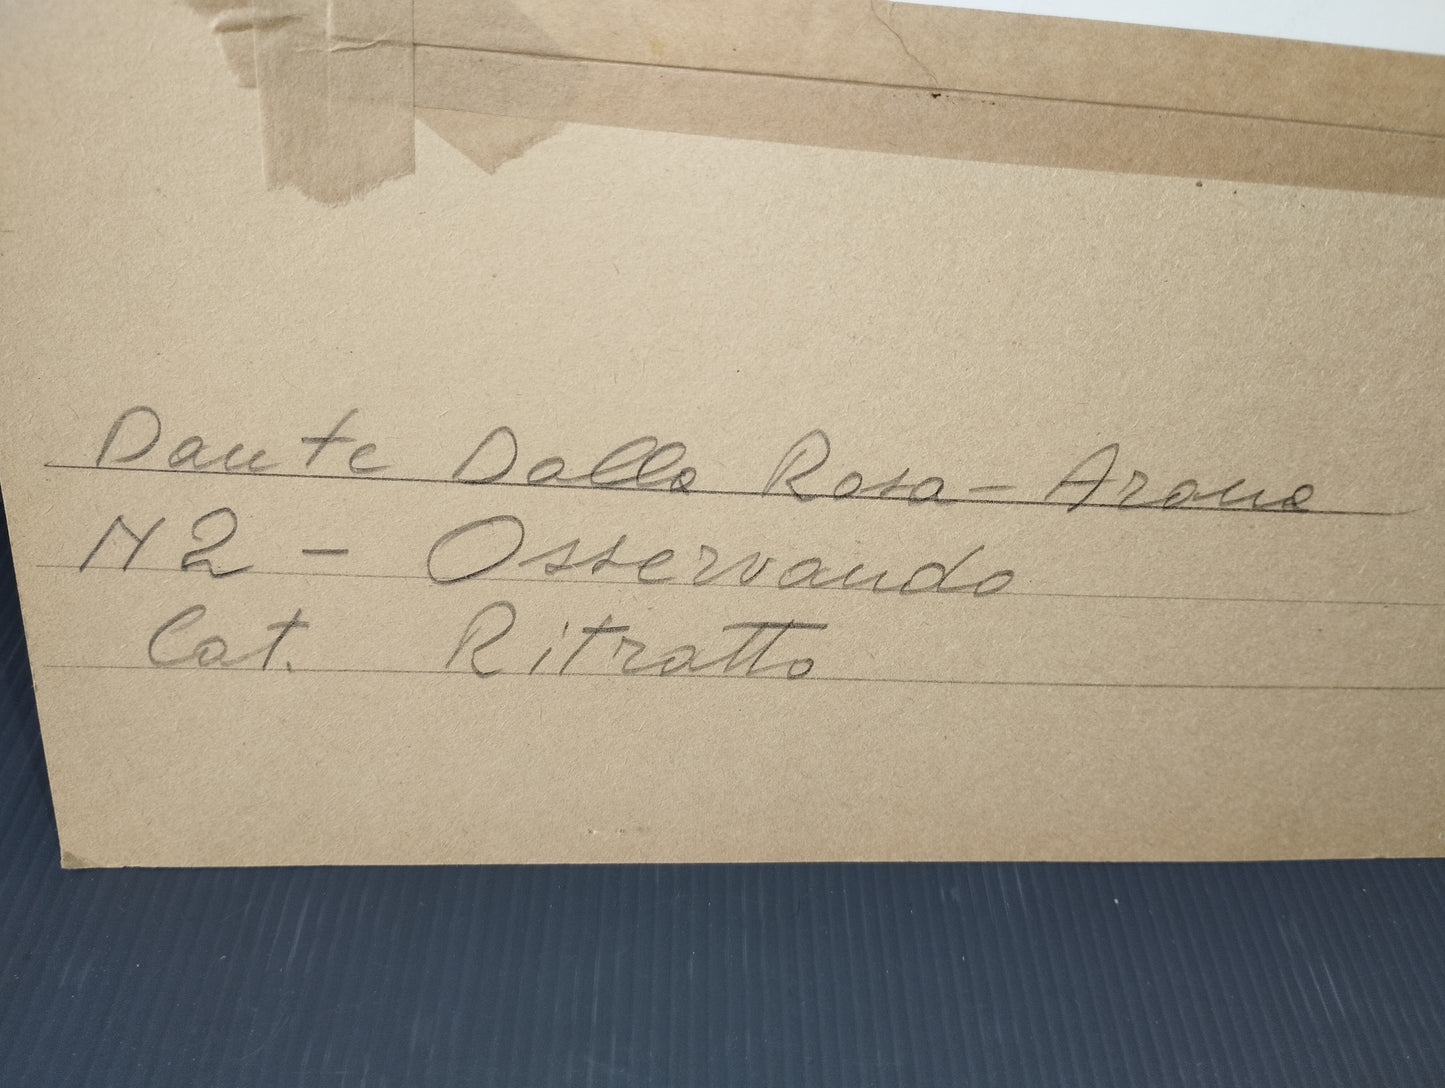 Dante Dalla Rosa - Arona
N 2 - Osservando
Cat. Ritratto